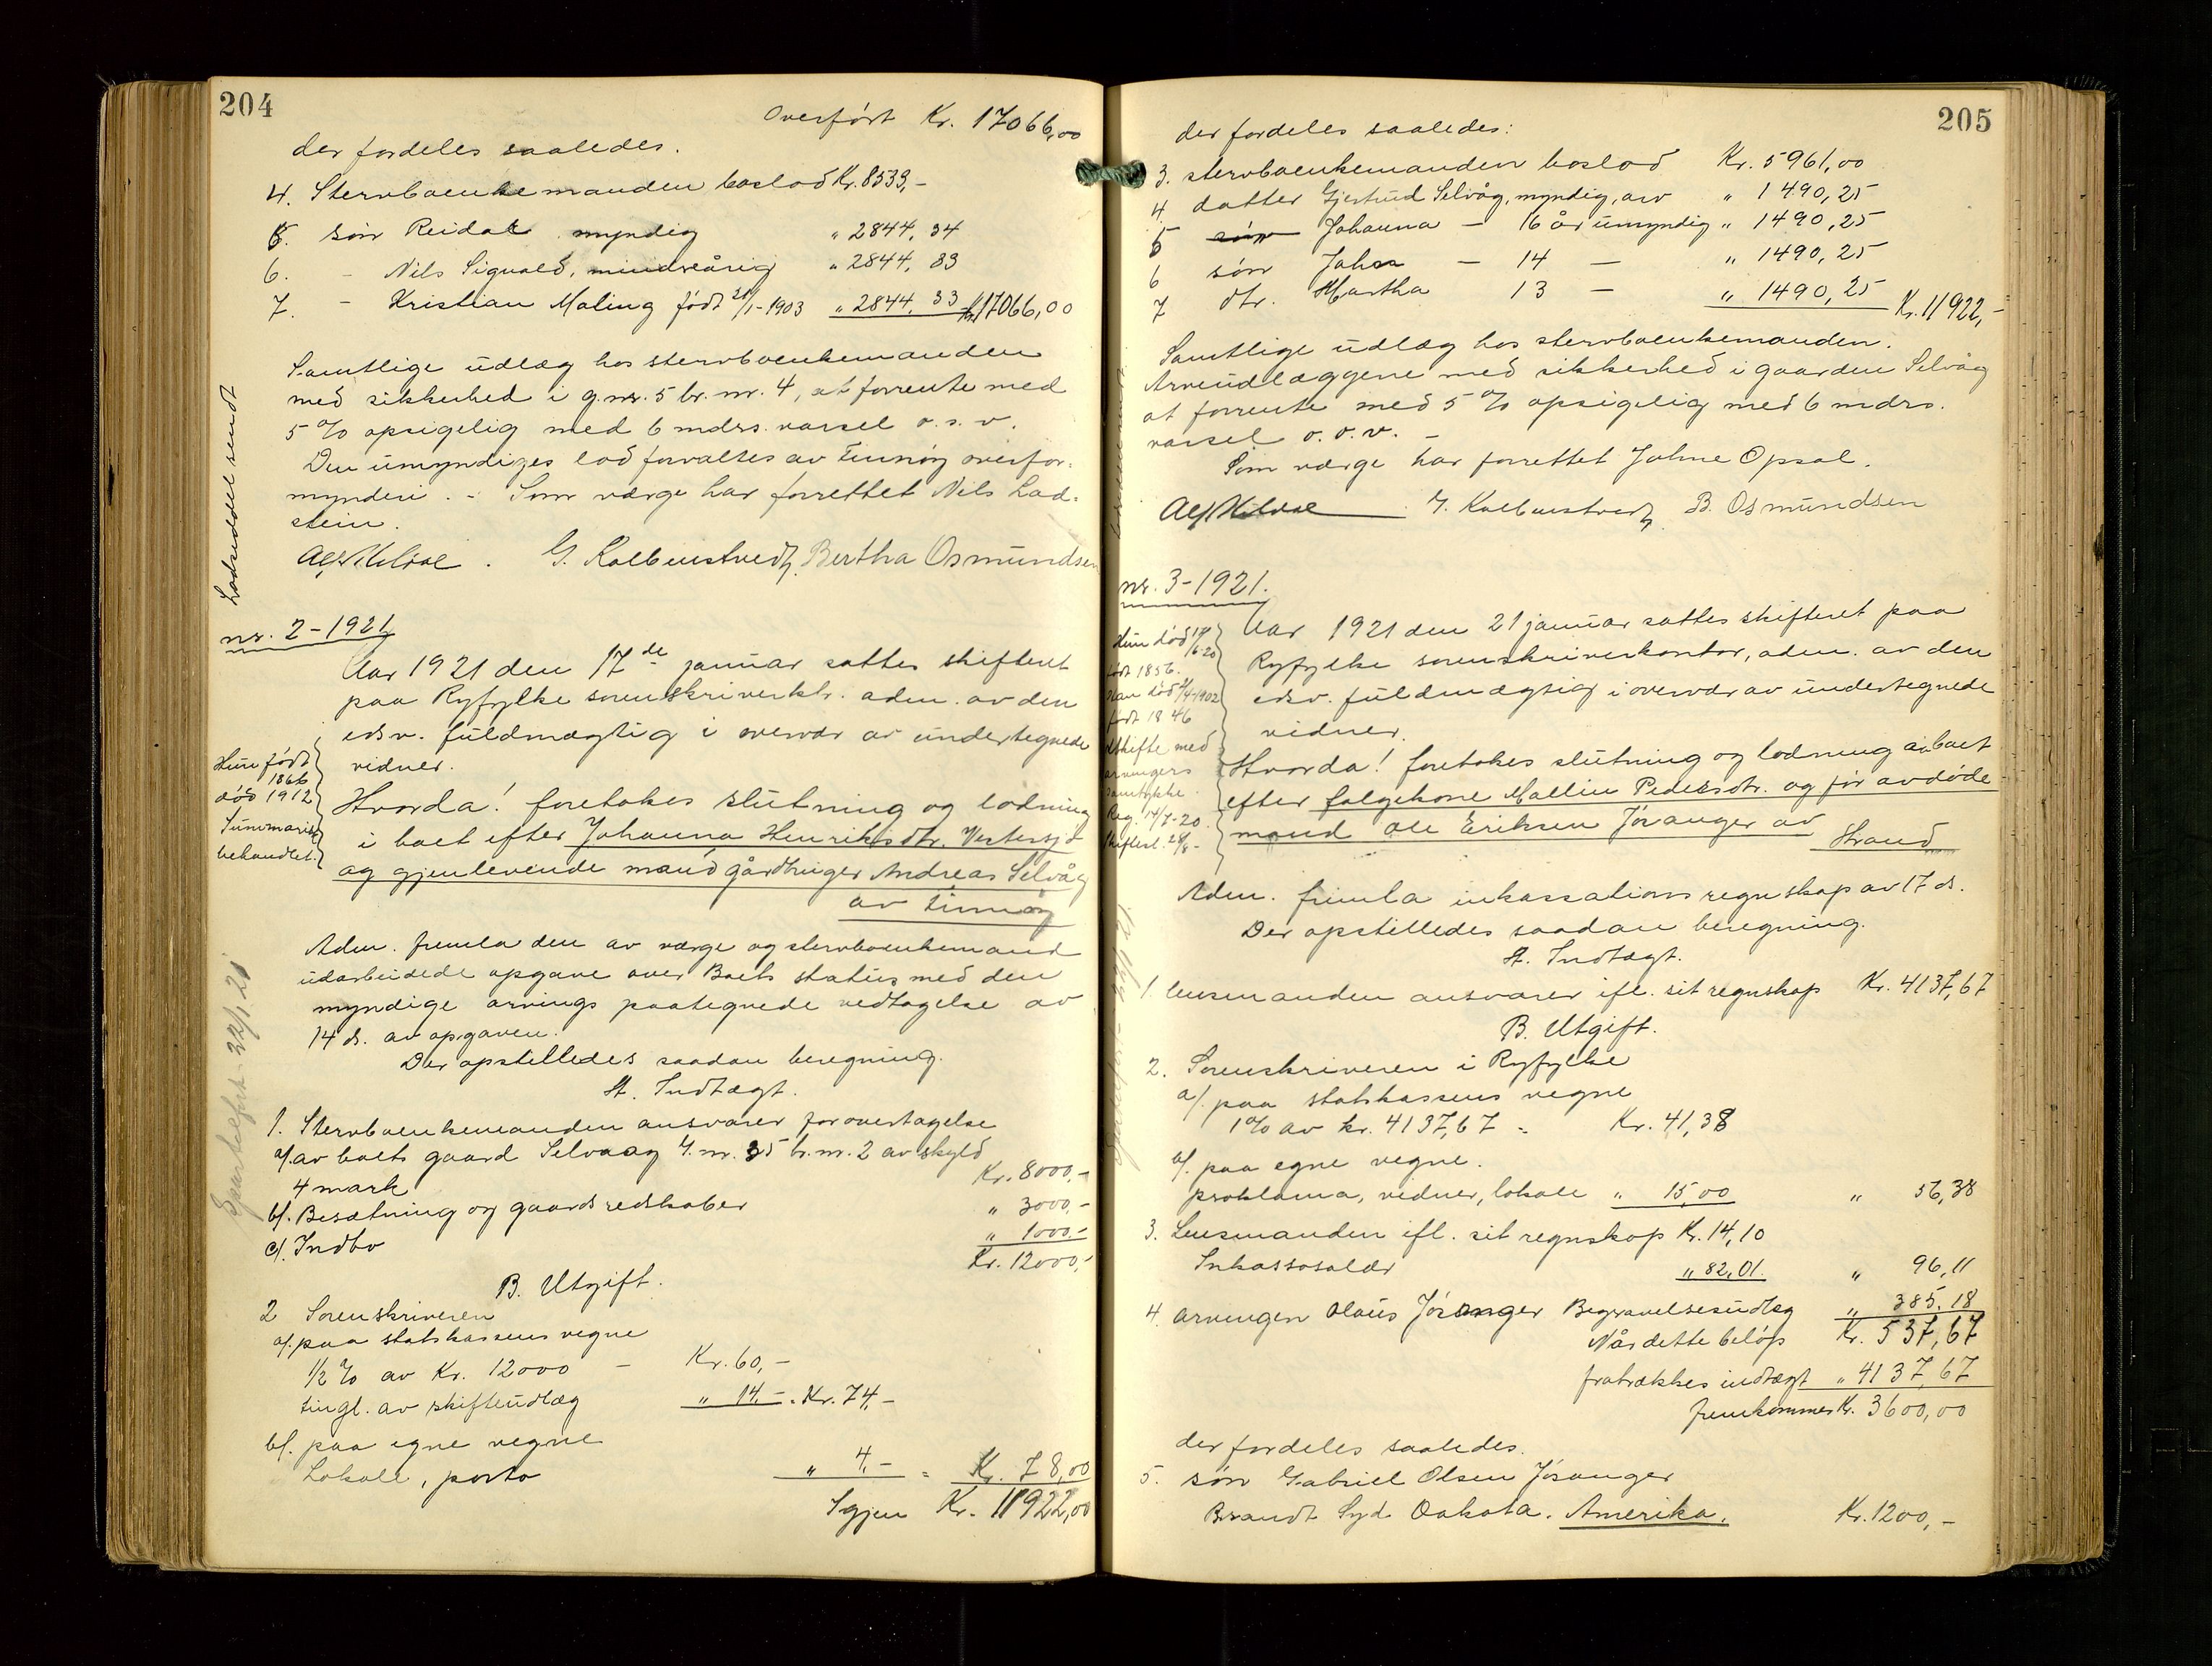 204
Overført Kr. 17066,00
der fordeles saaledes.
4. Stervboenkemanden boslod Kr. 8533,-
5. søn Reidar myndig " 2844,34
6. - Nils Sigvald, mindreårig " 2844,33
7. - Kristian Maling født 21/1-1903 " 2844,33 Kr. 17066,00
Samtlige udlæg hos stervboenkemanden
med sikkerhed i g.nr. 5 br. nr. 4, at forrente med
5 % opsigelig med 6 mdrs. varsel o. s. v.
Den umyndiges lod forvaltes av Finnøy overfor-
mynderi. - Som værge har forrettet Nils Lad-
stein.
Alf Mildal. G. Kolbenstvedt, Bertha Osmundsen
Lodseddel sendt
nr. 2-1921
Aar 1921 den 17de januar sattes skifteret
paa Ryfylke sorenskriverktr. adm. av den
edsv. fuldmægtig i overvær av undertegnede
vidner.
Hun født
1866
død 1912
Summarisk
behandlet.
Hvorda! foretokes slutning og lodning
i boet efter Johanna Henriksdtr. Vestersjø
og gjenlevende mand gårdbruger Andreas Selvåg
av Finnøy
Adm. fremla den av værge og stervboenkemand
udarbeidede opgave over Boets status med den
myndige arvings paategnede vedtagelse av
14 ds. av opgaven.
Der opstilledes saadan beregning.
A. Indtægt.
1. Stervboenkemanden ansvarer for overtagelse
a/. av boets gaard Selvaag g.nr. 35 br. nr. 2 av skyld
4 mark Kr. 8000,-
b/. Besætning og gaardsredskaber " 3000,-
c/. Indbo " 1000.-
Kr. 12000,-
B. Utgift.
2 Sorenskriveren
a/. paa statskassens vegne
1/2 % av Kr. 12000 - Kr. 60,-
tingl. av skifteudlæg " 14,- . Kr. 74,-
b/. paa egne vegne
Lokale, porto " 4,- = Kr. 78,00
Igjen Kr. 11922,00
205
der fordeles saaledes:
3. stervboenkemanden boslod Kr. 5961,00
4. datter Gjertrud Selvåg, myndig, arv " 1490,25
5 søn Johanna - 16 år umyndig " 1490,25
6 søn Johan - 14 - " 1490,25
7 dtr. Martha 13 - " 1490,25 Kr. 11922,-
Samtlige udlæg hos stervboenkemanden.
Arveudlæggene med sikkerhed i gaarden Selvåg
at forrente med 5 % opsigelig med 6 mdrs.
varsel o. s. v. -
Som værge har forrettet Johne Opsal.
Alf Mildal G. Kolbenstvedt, B. Osmundsen
nr. 3-1921.
Aar 1921 den 21 januar sattes skifteret paa
Ryfylke sorenskriverkontor, adm. av den
edsv. fuldmægtig i overvær av undertegnede
vidner.
født 1856.
født 1846
skifte med
arvingers
samtykke.
Hvorda! foretokes slutning og lodning i boet
efter følgekone Mallin Pedersdtr. og før avdøde
mand Ole Eriksen Jøsanger av
Strand
Adm. fremla inkassationsregnskap av 17 ds.
Der opstilledes saadan beregning.
A. Indtægt.
1. lensmanden ansvarer ifl. sit regnskap Kr. 4137,67
B. Utgift.
2. Sorenskriveren i Ryfylke
a/. paa statskassens vegne
1 % av kr. 4137,67 = Kr. 41,38
b/. paa egne vegne.
proklama, vidner, lokale " 15,00 " 56,38
3. Lensmanden ifl. sit regnskap Kr. 14,10
Inkassosalær " 82,01. " 96,11
4. arvingen Olaus Jøsanger Begravelsesudlæg " 385.18
Når dette beløp Kr. 537,67
fratrækkes indtægt " 4137,67
fremkommer Kr. 3600,00
der fordeles saaledes.
5. søn Gabriel Olsen Jøsanger
Brandt Syd Dakota. Amerika. Kr. 1200,-